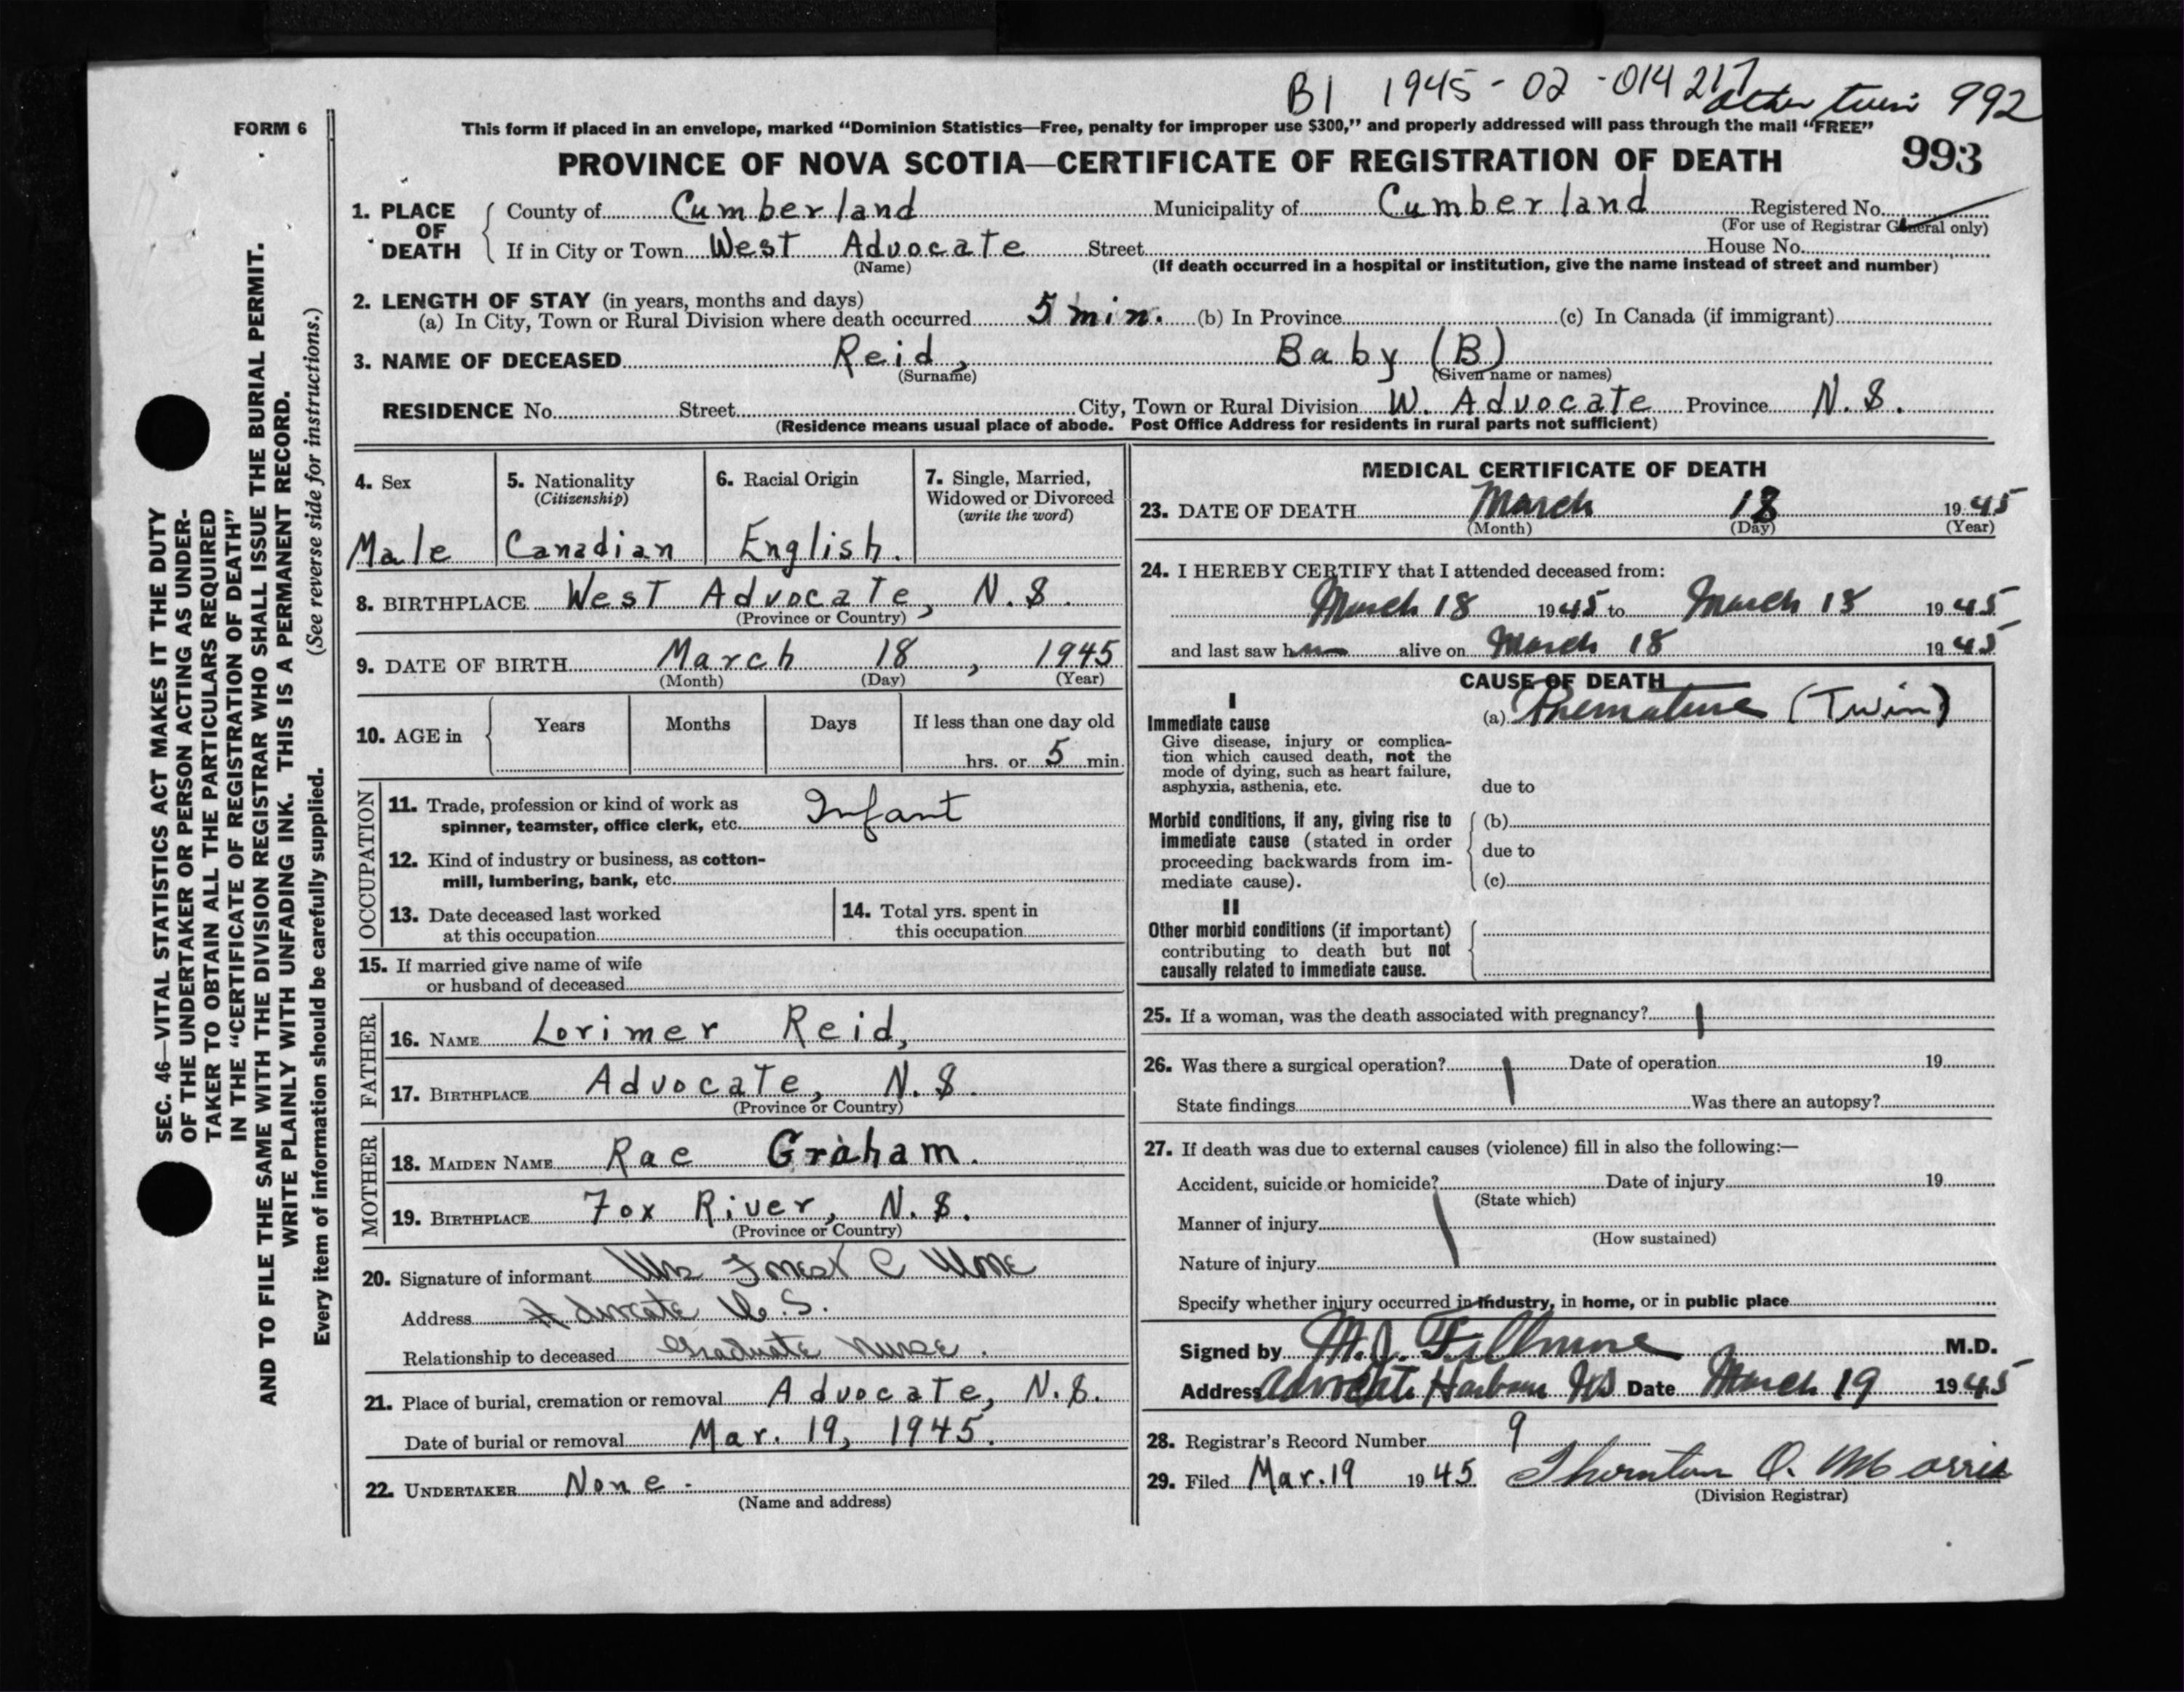 B1 1945-02-014217 other twin 992
FORM 6
This form if placed in an envelope, marked “Dominion Statistics—Free, penalty for improper use $300,” and properly addressed will pass through the mail “FREE”
PROVINCE OF NOVA SCOTIA—CERTIFICATE OF REGISTRATION OF DEATH 993
1. PLACE OF DEATH
County of Cumberland Municipality of Cumberland Registered No.
(For use of Registrar General only)
If in City or Town West Advocate Street House No.
(Name) (If death occurred in a hospital or institution, give the name instead of street and number)
2. LENGTH OF STAY (in years, months and days)
(a) In City, Town or Rural Division where death occurred 5 min. (b) In Province (c) In Canada (if immigrant)
3. NAME OF DECEASED Reid, Baby (B)
(Surname) (Given name or names)
RESIDENCE No. Street City, Town or Rural Division W. Advocate Province N.S.
(Residence means usual place of abode. Post Office Address for residents in rural parts not sufficient)
4. Sex
Male
5. Nationality
(Citizenship)
Canadian
6. Racial Origin
English.
7. Single, Married,
Widowed or Divorced
(write the word)
8. BIRTHPLACE West Advocate, N.S.
(Province or Country)
9. DATE OF BIRTH March 18, 1945
(Month) (Day) (Year)
10. AGE in
Years Months Days If less than one day old
hrs. or 5 min.
OCCUPATION
11. Trade, profession or kind of work as
spinner, teamster, office clerk, etc. Infant
12. Kind of industry or business, as cotton-
mill, lumbering, bank, etc.
13. Date deceased last worked
at this occupation
14. Total yrs. spent in
this occupation
15. If married give name of wife
or husband of deceased
FATHER
16. NAME Lorimer Reid,
17. BIRTHPLACE Advocate, N.S.
(Province or Country)
MOTHER
18. MAIDEN NAME Rae Graham.
19. BIRTHPLACE Fox River, N.S.
(Province or Country)
20. Signature of informant Mrs C
Address Advocate N.S.
Relationship to deceased Graduate Nurse.
21. Place of burial, cremation or removal Advocate, N.S.
Date of burial or removal Mar. 19, 1945.
22. UNDERTAKER None.
(Name and address)
MEDICAL CERTIFICATE OF DEATH
23. DATE OF DEATH March 18 1945
(Month) (Day) (Year)
24. I HEREBY CERTIFY that I attended deceased from:
March 18 1945 to March 18 1945
and last saw him alive on March 18 1945
CAUSE OF DEATH
I
Immediate cause
Give disease, injury or complica-
tion which caused death, not the
mode of dying, such as heart failure,
asphyxia, asthenia, etc.
(a) Premature (Twin)
due to
Morbid conditions, if any, giving rise to
immediate cause (stated in order
proceeding backwards from im-
mediate cause).
(b)
due to
(c)
II
Other morbid conditions (if important)
contributing to death but not
causally related to immediate cause.
25. If a woman, was the death associated with pregnancy?
26. Was there a surgical operation? Date of operation 19
State findings Was there an autopsy?
27. If death was due to external causes (violence) fill in also the following:—
Accident, suicide or homicide? Date of injury 19
(State which)
Manner of injury
(How sustained)
Nature of injury
Specify whether injury occurred in industry, in home, or in public place
Signed by M.J. Fillmore M.D.
Address Advocate Harbour NS Date March 19 1945
28. Registrar's Record Number 9
29. Filed Mar. 19 1945 Thornton O. Morris
(Division Registrar)
SEC. 46—VITAL STATISTICS ACT MAKES IT THE DUTY
OF THE UNDERTAKER OR PERSON ACTING AS UNDER-
TAKER TO OBTAIN ALL THE PARTICULARS REQUIRED
IN THE “CERTIFICATE OF REGISTRATION OF DEATH”
AND TO FILE THE SAME WITH THE DIVISION REGISTRAR WHO SHALL ISSUE THE BURIAL PERMIT.
WRITE PLAINLY WITH UNFADING INK. THIS IS A PERMANENT RECORD.
Every item of information should be carefully supplied. (See reverse side for instructions.)